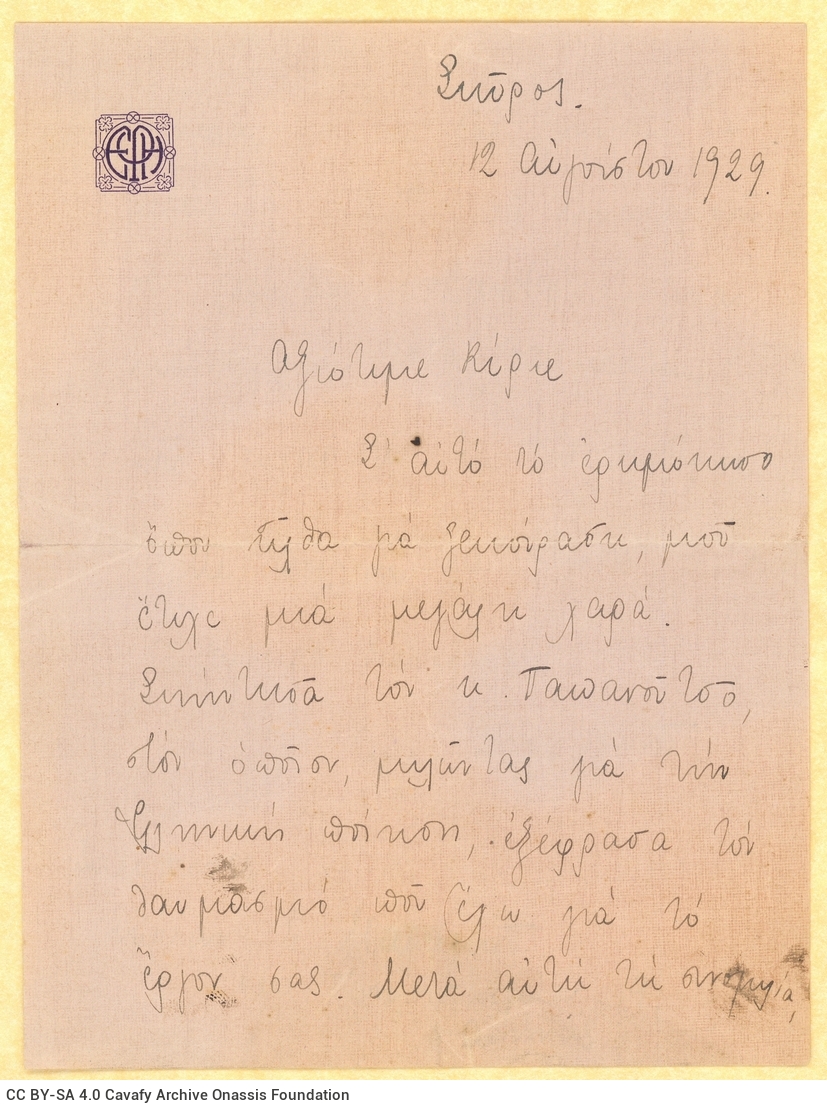 Σκῦρος.
12 Αὐγούστου 1929.
Ἀξιότιμε Κύριε
Σ' αὐτό τό ἐρημόνησο
ὅπου ἦλθα γιά ξεκούραση, μοῦ
ἔτυχε μιά μεγάλη χαρά.
Συνήντησα τόν κ. Παπανοῦτσο,
στόν ὁποῖον, μιλῶντας γιά τήν
Ἑλληνική ποίηση, ἐξέφρασα τόν
θαυμασμό ποῦ ἔχω γιά τό
ἔργον σας. Μετά αὐτή τή συνομιλία,
CC BY-SA 4.0 Cavafy Archive Onassis Foundation